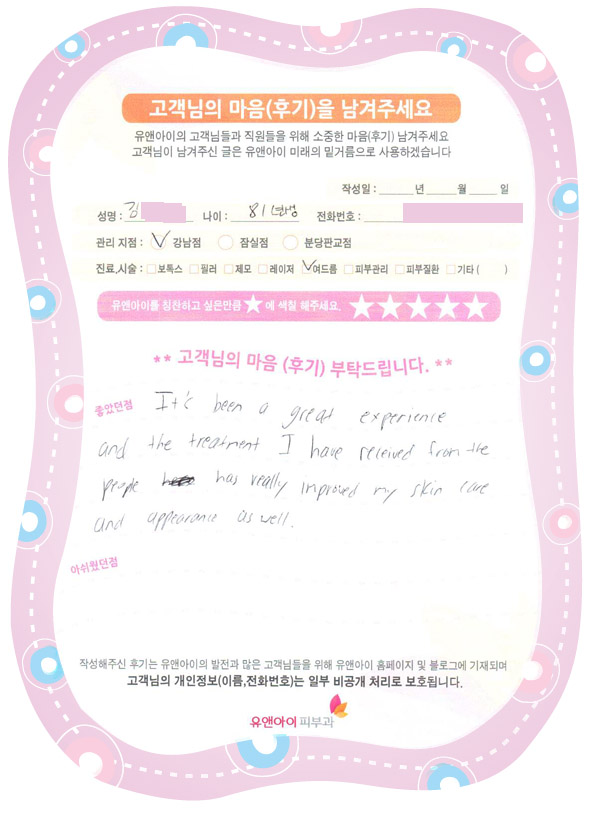 고객님의 마음(후기)을 남겨주세요
유앤아이의 고객님들과 직원들을 위해 소중한 마음(후기) 남겨주세요
고객님이 남겨주신 글은 유앤아이 미래의 밑거름으로 사용하겠습니다
작성일 : 년 월 일
성명 : 김 나이 : 81년생 전화번호 :
관리 지점 : 강남점 잠실점 분당판교점
진료,시술 : 보톡스 필러 제모 레이저 여드름 피부관리 피부질환 기타 ( )
유앤아이를 칭찬하고 싶은만큼 ★ 에 색칠 해주세요. ★★★★★
** 고객님의 마음 (후기) 부탁드립니다. **
좋았던점 It's been a great experience
and the treatment I have received from the
people has really improved my skin care
and appearance as well.
아쉬웠던점
작성해주신 후기는 유앤아이의 발전과 많은 고객님들을 위해 유앤아이 홈페이지 및 블로그에 기재되며
고객님의 개인정보(이름,전화번호)는 일부 비공개 처리로 보호됩니다.
유앤아이 피부과